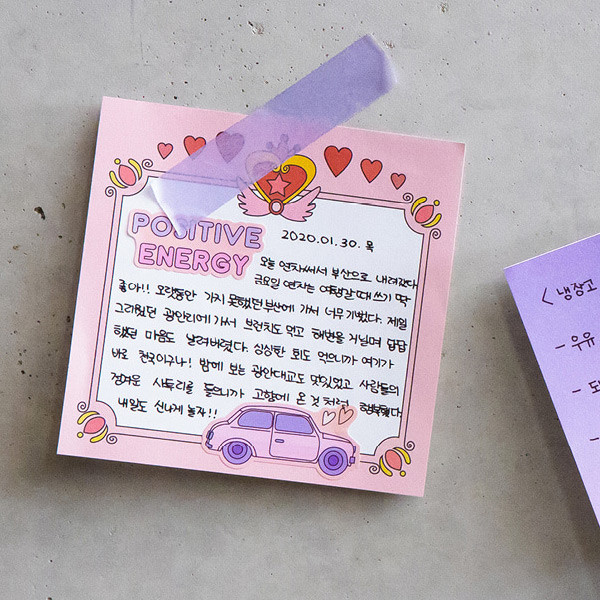 POSITIVE
ENERGY
2020.01.30. 목
오늘 연차써서 부산으로 내려갔다
금요일 연차는 여행갈 때 쓰기 딱
좋아!! 오랫동안 가지 못했던 부산에 가서 너무 기뻤다. 제일
그리웠던 광안리에 가서 브런치도 먹고 해변을 거닐며 답답
했던 마음도 날려버렸다. 싱싱한 회도 먹으니까 여기가
바로 천국이구나! 밤에 보는 광안대교도 멋있었고 사람들의
정겨운 사투리를 들으니까 고향에 온 것처럼 행복했다
내일도 신나게 놀자!!
< 냉장고
- 우유
-
-